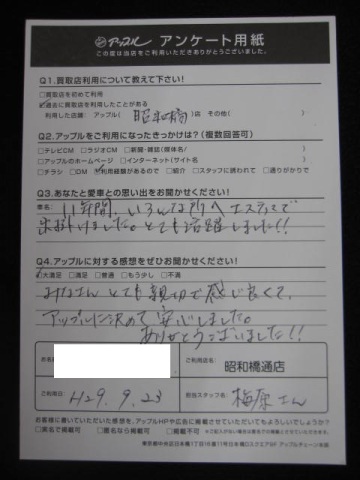 アップル アンケート用紙
この度は当店をご利用いただきありがとうございました。
Q1.買取店利用について教えて下さい!
□買取店を初めて利用
☑過去に買取店を利用したことがある
利用した店舗: アップル( 昭和橋 )店 その他( )
Q2.アップルをご利用になったきっかけは?(複数回答可)
□テレビCM □ラジオCM □新聞・雑誌(媒体名/ )
□アップルのホームページ □インターネット(サイト名 )
□チラシ □DM ☑利用経験があるので □紹介 □スタッフに誘われて □通りがかりで
Q3.あなたと愛車との思い出をお聞かせください!
車名:
11年間、いろんな所へエスティマで
お出かけしました。とても活躍しました!!
Q4.アップルに対する感想をぜひお聞かせください!
☑大満足 □満足 □普通 □もう少し □不満
みなさんとても親切で感じ良くて、
アップルに決めて安心しました。
ありがとうございました!!
お名前
ご利用店名: 昭和橋通店
ご利用日: H29.9.23
担当スタッフ名: 梅原さん
お客様に書いていただいた感想を、アップルHPや広告に掲載させていただいてもよろしいでしょうか?
□実名で掲載可 □匿名なら掲載可 □掲載不可